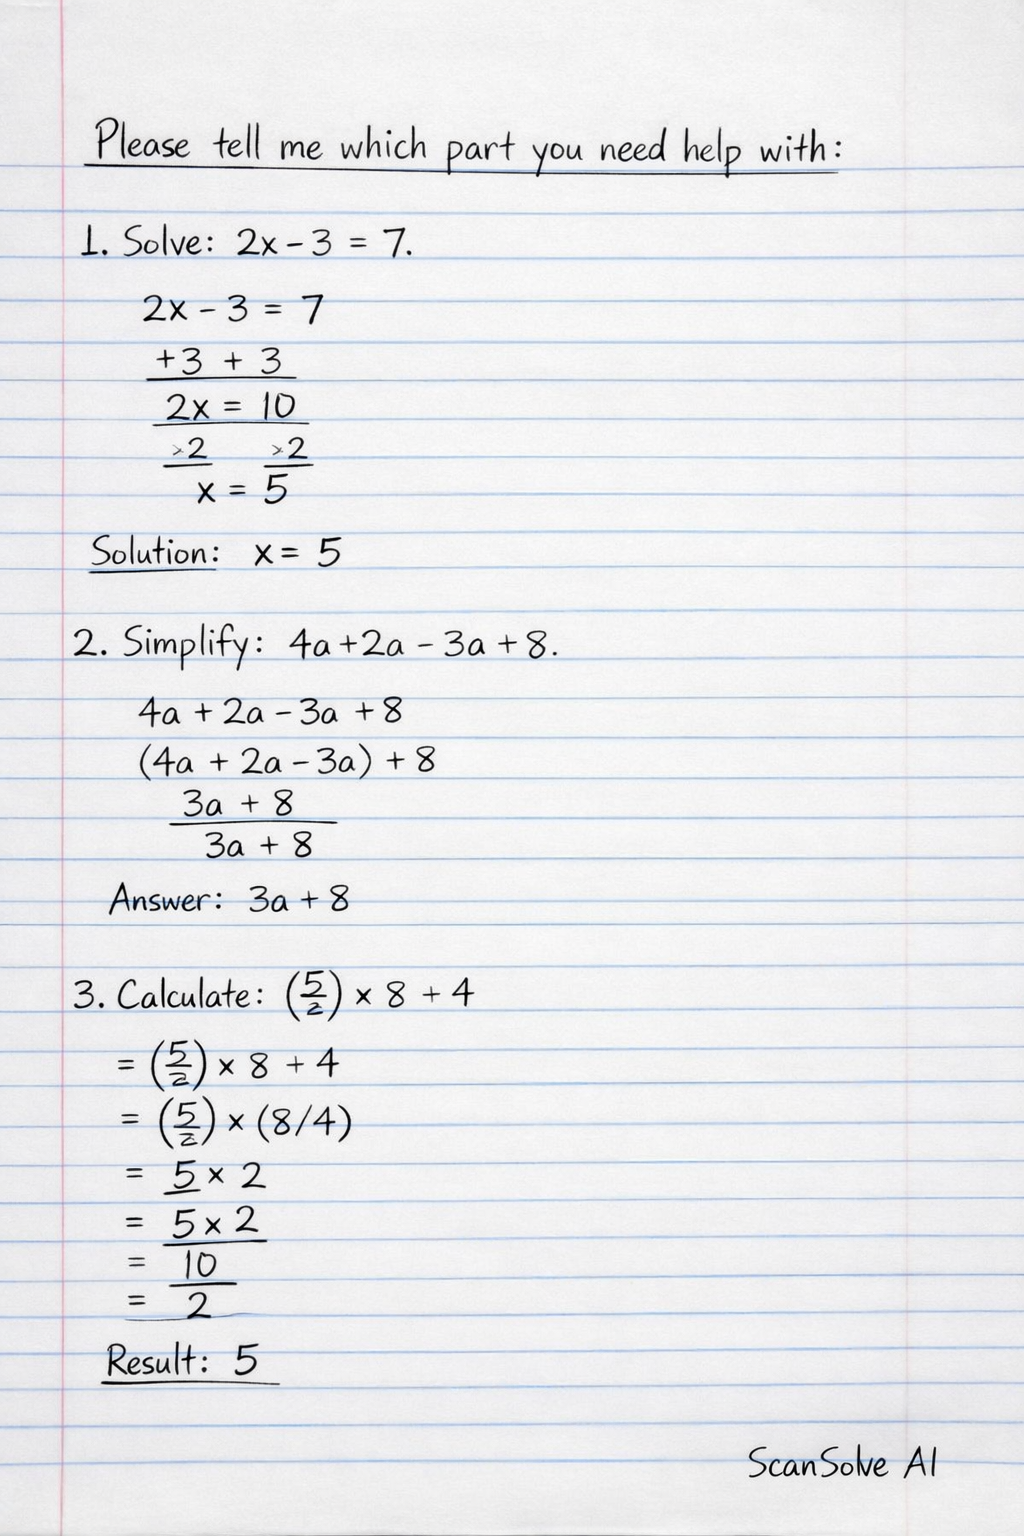 Please tell me which part you need help with:
1. Solve: 2x - 3 = 7.
2x - 3 = 7
+3 + 3
2x = 10
÷2 ÷2
x = 5
Solution: x = 5
2. Simplify: 4a + 2a - 3a + 8.
4a + 2a - 3a + 8
(4a + 2a - 3a) + 8
3a + 8
3a + 8
Answer: 3a + 8
3. Calculate: (5/2) × 8 + 4
= (5/2) × 8 + 4
= (5/2) × (8/4)
= 5 × 2
= 5 × 2
= 10
= 2
Result: 5
ScanSolve AI